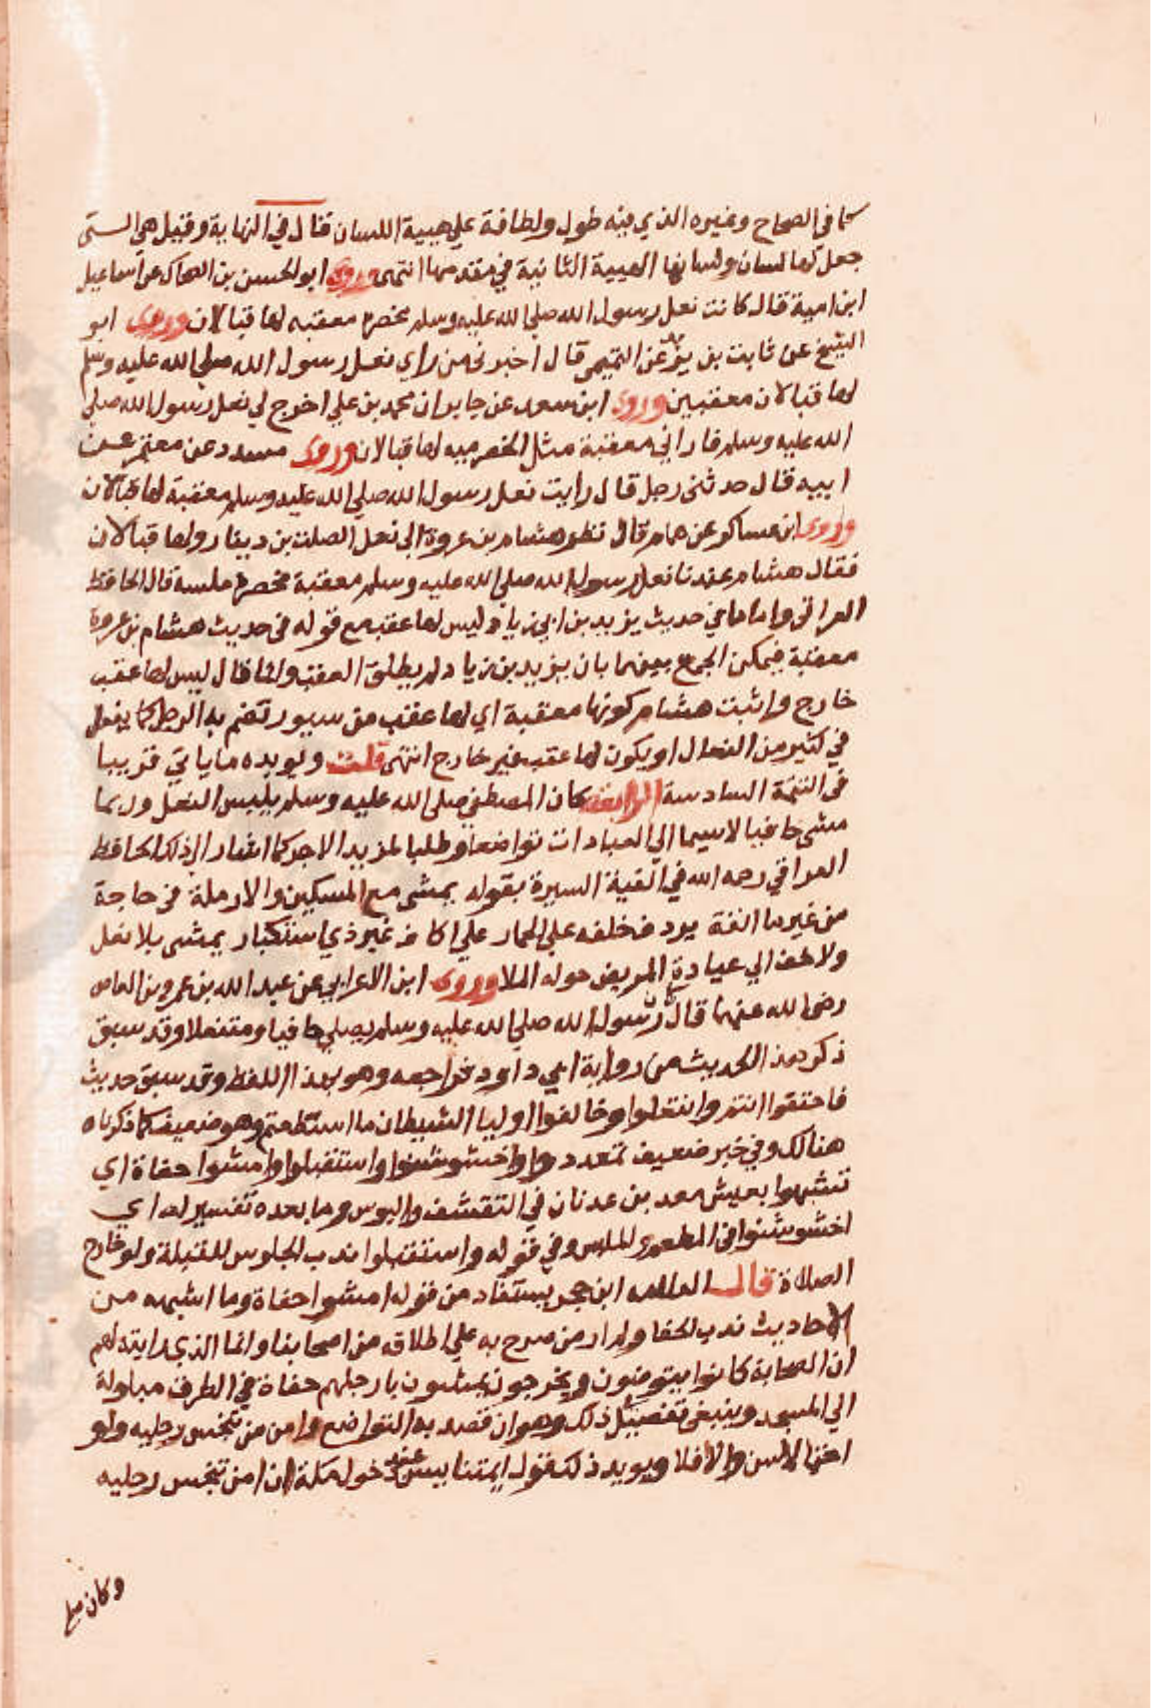 كما في الصحاح وغيره الذي فيه طول ولطافة علي هيية اللسان قال في النهاية وقيل هي التي
جعل لها لسان ولسانها الهيية الثانية في مقدمها انتهى وروى ابو الحسن بن الضحاك عن اسماعيل
ابن امية قال كانت نعل رسول الله صلي الله عليه وسلم مخصرة معقبه لها قبالان وروى ابو
الشيخ عن ثابت بن يزيد عن التيمي قال اخبرني من راي نعل رسول الله صلي الله عليه وسلم
لها قبالان معقبين وروى ابن سعد عن جابر ان محمد بن علي اخرج لي نعل رسول الله صلي
الله عليه وسلم فاراني معقبة مثل الحضرميه لها قبالان وروى مسدد عن معتمر عن
ابيه قال حدثني رجل قال رايت نعل رسول الله صلي الله عليه وسلم معقبة لها قبالان
وروى ابن عساكر عن همام قال نظر هشام بن عروة الي نعل الصلت بن دينار ولها قبالان
فقال هشام عندنا نعل رسول الله صلي الله عليه وسلم معقبة مخصرة ملسنة قال الحافظ
العراقي واما ما في حديث يزيد بن ابي زياد ليس لها عقب مع قوله في حديث هشام بن عروة
معقبة فيمكن الجمع بينهما بان يزيد بن زياد لم يطلق العقب وانما قال ليس لها عقب
خارج واثبت هشام كونها معقبة اي لها عقب من سيور تضم به الرجل كما يفعل
في كثير من النعال او يكون لها عقب غير خارج انتهى قلت ويويده ما ياتي قريبا
في التتمة السادسة الرابعة كان المصطفي صلي الله عليه وسلم يلبس النعل وربما
مشي حافيا لاسيما الي العبادات تواضعا وطلبا لمزيد الاجر كما اشار الي ذلك الحافظ
العراقي رحمه الله في الفية السيرة بقوله يمشي مع المسكين والارملة في حاجة
من غير ما انفة يردف خلفه علي الحمار علي اكاف غير ذي استكبار يمشي بلا نعل
ولا خف الي عيادة المريض حوله الملا وروى ابن الاعرابي عن عبد الله بن عمرو بن العاص
رضي الله عنهما قال رسول الله صلي الله عليه وسلم يصلي حافيا ومتنعلا وقد سبق
ذكر هذا الحديث من رواية ابي داود فراجعه وهو بهذا اللفظ وقد سبق حديث
فاحتفوا انتم وانتعلوا وخالفوا اوليا الشيطان ما استطعتم وهو ضعيف كما ذكرناه
هنالك وفي خبر ضعيف تمعددوا واخشوشنوا واستقبلوا وامشوا حفاة اي
تشبهوا بعيش معد بن عدنان في التقشف والبوس وما بعده تفسير له اي
اخشوشنوا في المطعم والملبس وفي قوله واستقبلوا ندب الجلوس للقبلة ولو خارج
الصلاة قال العلامه ابن حجر يستفاد من قوله امشوا حفاة وما اشبهه من
الاحاديث ندب الحفا ولم ار من صرح به علي اطلاقه من اصحابنا وانما الذي رايته لهم
ان الصحابة كانوا يتوضون ويخرجون يمشون بارجلهم حفاة في الطرق مبادرة
الي المسجد وينبغي تفصيل ذلك وهو ان قصد به التواضع وامن من تنجس رجليه ولو
احتمالا سن والا فلا ويويد ذلك قول ايمتنا يسن عند دخول مكة ان امن تنجس رجليه
وكان